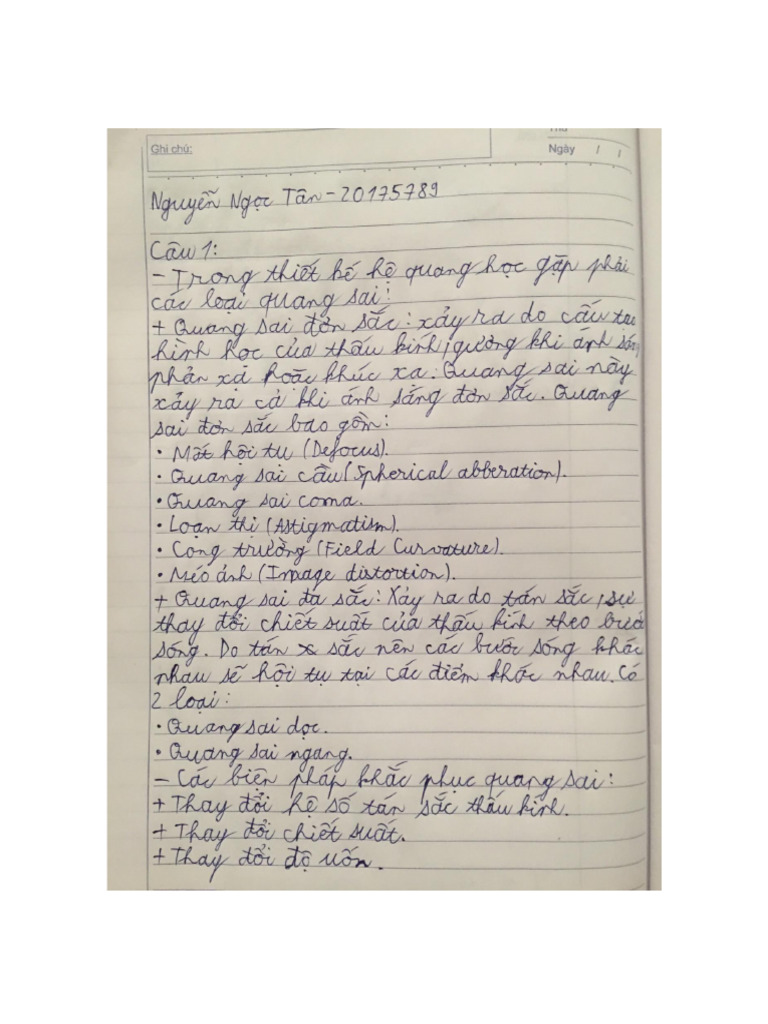 Thứ
Ghi chú:
Ngày / /
Nguyễn Ngọc Tân - 20175789
Câu 1:
- Trong thiết kế hệ quang học gặp phải
các loại quang sai:
+ Quang sai đơn sắc: xảy ra do cấu tạo
hình học của thấu kính, gương khi ánh sáng
phản xạ hoặc khúc xạ. Quang sai này
xảy ra cả khi ánh sáng đơn sắc. Quang
sai đơn sắc bao gồm:
• Mất hội tụ (Defocus).
• Quang sai cầu (Spherical abberation).
• Quang sai coma.
• Loạn thị (Astigmatism).
• Cong trường (Field Curvature).
• Méo ảnh (Image distortion).
+ Quang sai đa sắc: Xảy ra do tán sắc, sự
thay đổi chiết suất của thấu kính theo bước
sóng. Do tán sắc nên các bước sóng khác
nhau sẽ hội tụ tại các điểm khác nhau. Có
2 loại:
• Quang sai dọc.
• Quang sai ngang.
- Các biện pháp khắc phục quang sai:
+ Thay đổi hệ số tán sắc thấu kính.
+ Thay đổi chiết suất.
+ Thay đổi độ uốn.